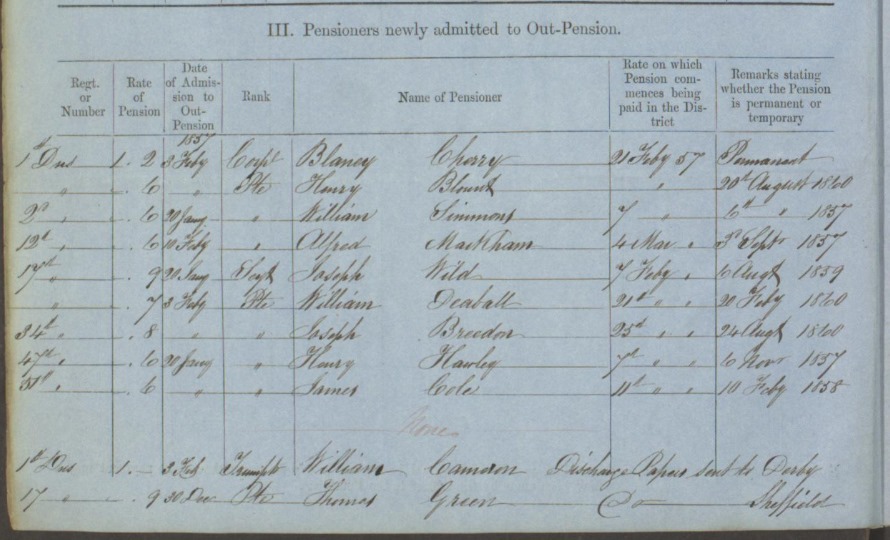 III. Pensioners newly admitted to Out-Pension.
Regt. or Number | Rate of Pension | Date of Admission to Out-Pension | Rank | Name of Pensioner | Rate on which Pension commences being paid in the District | Remarks stating whether the Pension is permanent or temporary
1857
1st Dns 1. 2 3 Feby Corpl Blaney Cherry 21 Feby 57 Permanent
" . 6 " Pte Henry Blount " 20th August 1860
2d " . 6 20 Jany " William Simmons 7 " 6th " 1857
12th " . 6 10 Feby " Alfred Markham 4 Mar " 3d Septr 1857
17th " . 9 20 Jany Serjt Joseph Wild 7 Feby " 6 Augt 1859
" . 7 3 Feby Pte William Deaball 21st " " 20 Feby 1860
34th " . 8 " " Joseph Breedon 25th " " 24 Augt 1860
47th " . 6 20 Jany " Henry Hawley 7th " " 6 Novr 1857
" . 6 " " James Cole 11th " " 10 Feby 1858
None
1st Dns 1. — 3 Feb Trumptr William Camdon Discharge Papers sent to Derby
17 " . 9 30 Dec Pte Thomas Green Do Sheffield